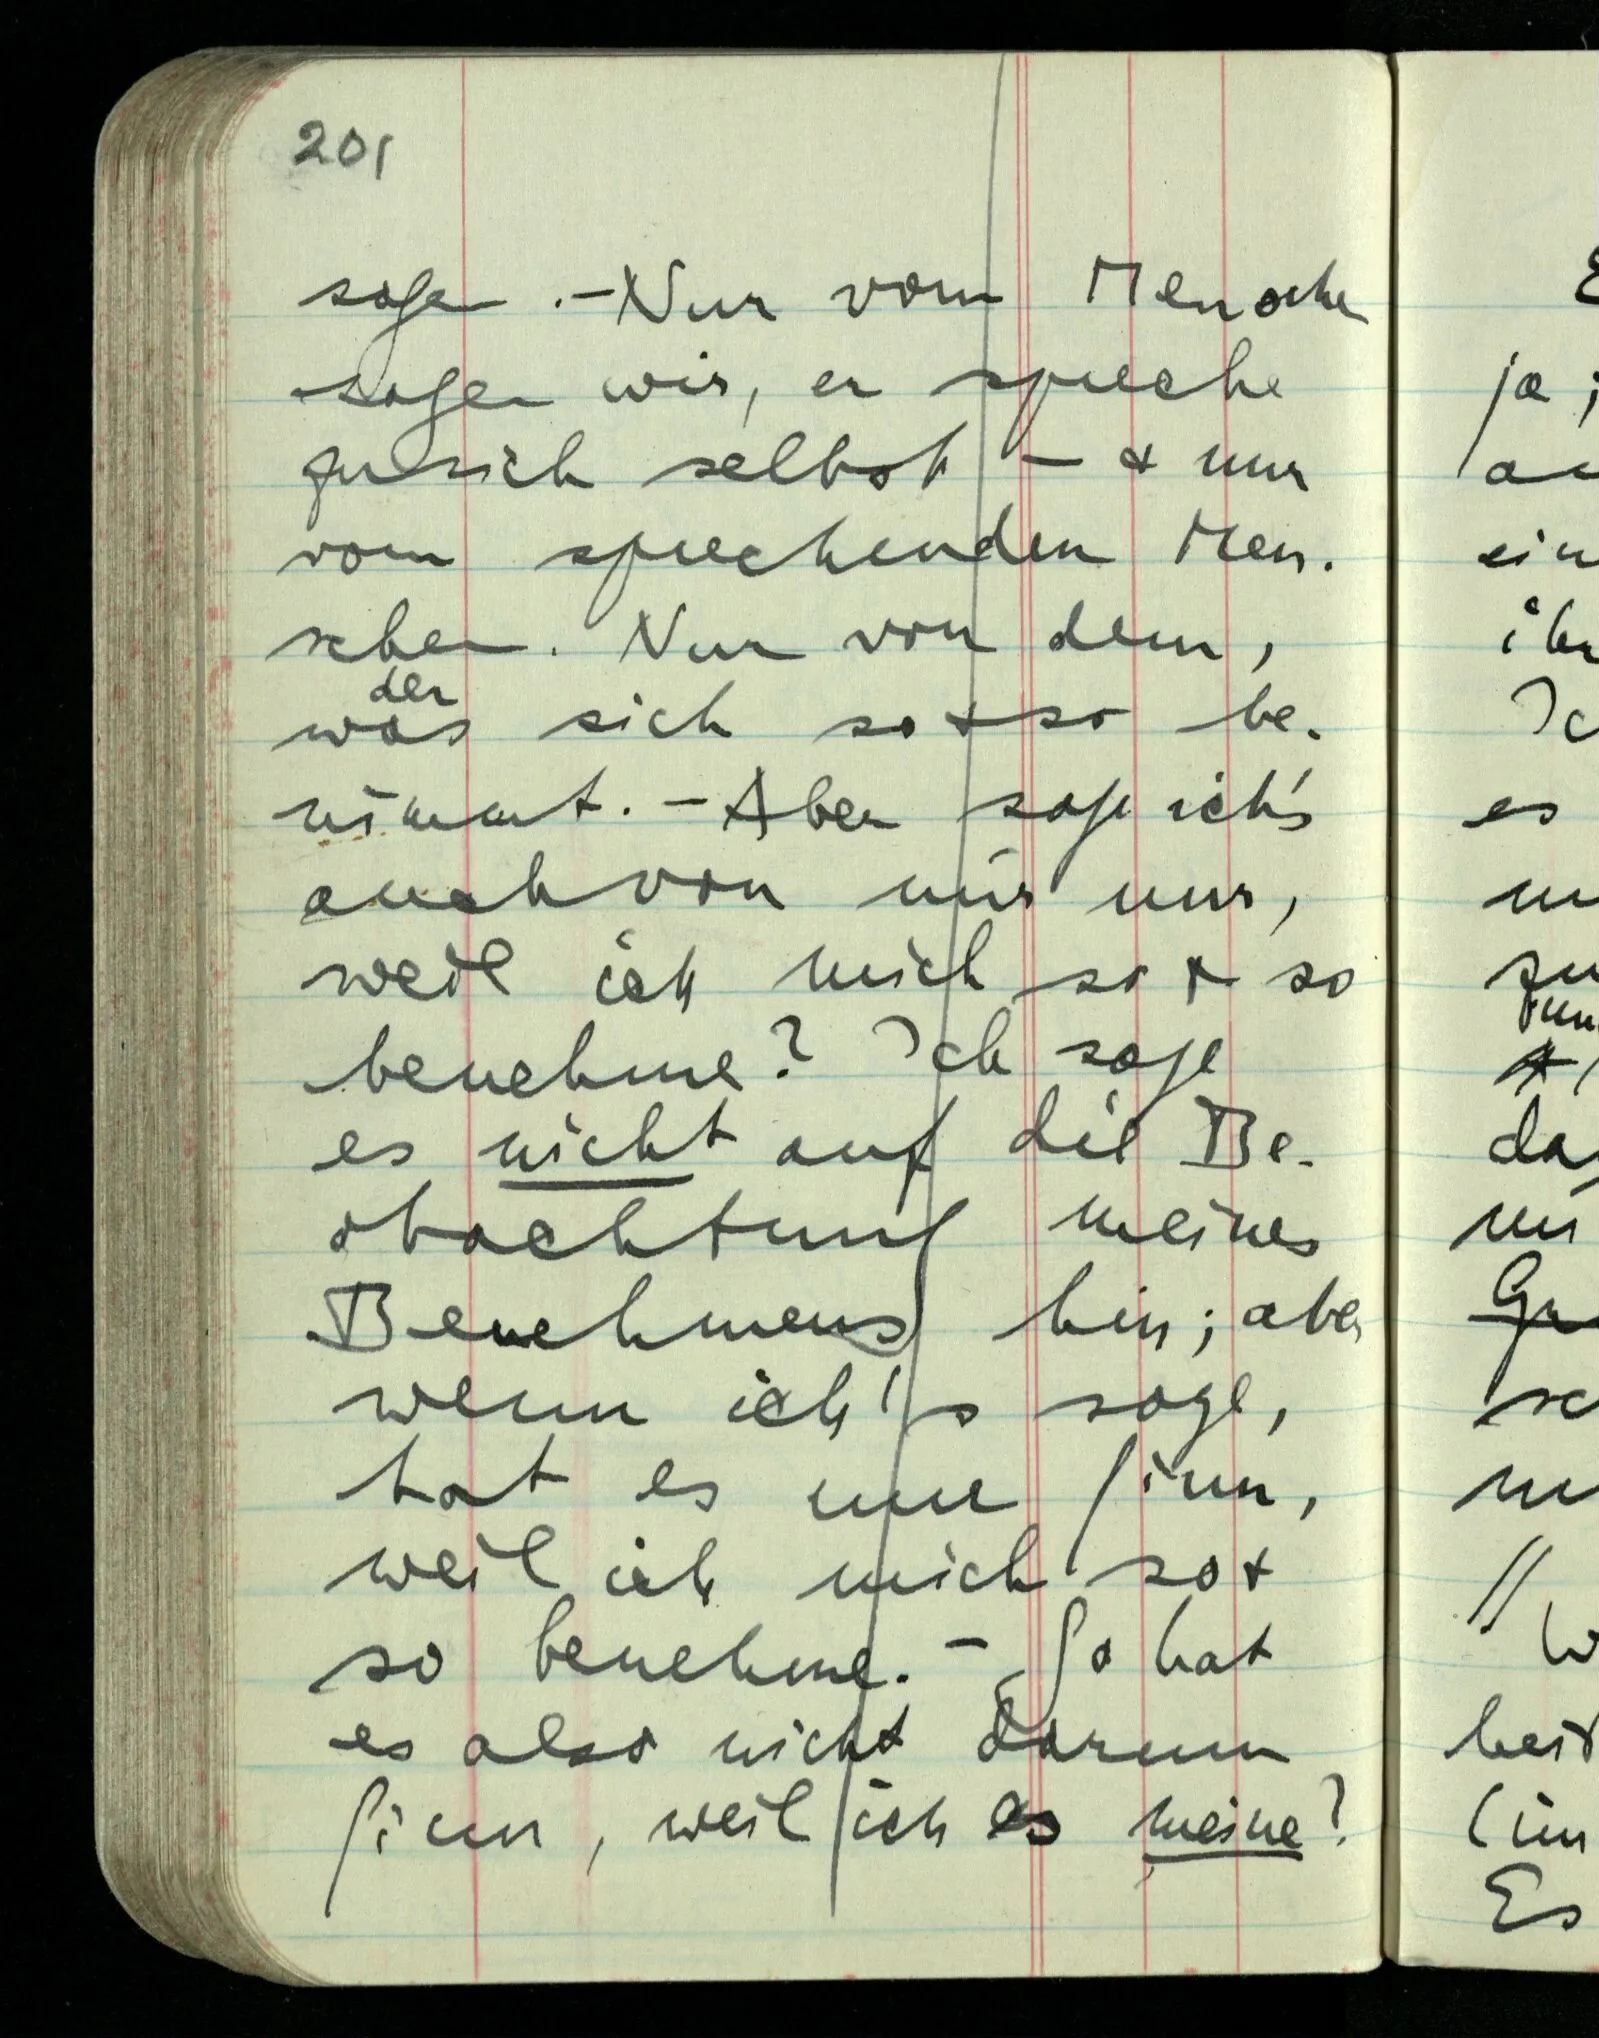 201
sagen. – Nur vom Menschen
sagen wir, er spreche
zu sich selbst – & nur
vom sprechenden Men-
schen. Nur von dem,
der
was sich so & so be-
nimmt. – Aber sage ich's
auch von mir nur,
weil ich mich so & so
benehme? Ich sage
es nicht auf die Be-
obachtung meines
Benehmens hin; aber
wenn ich's sage,
hat es nur Sinn,
weil ich mich so &
so benehme. – So hat
es also nicht darum
Sinn, weil ich es meine?
ja;
ein
ihr
es
Es